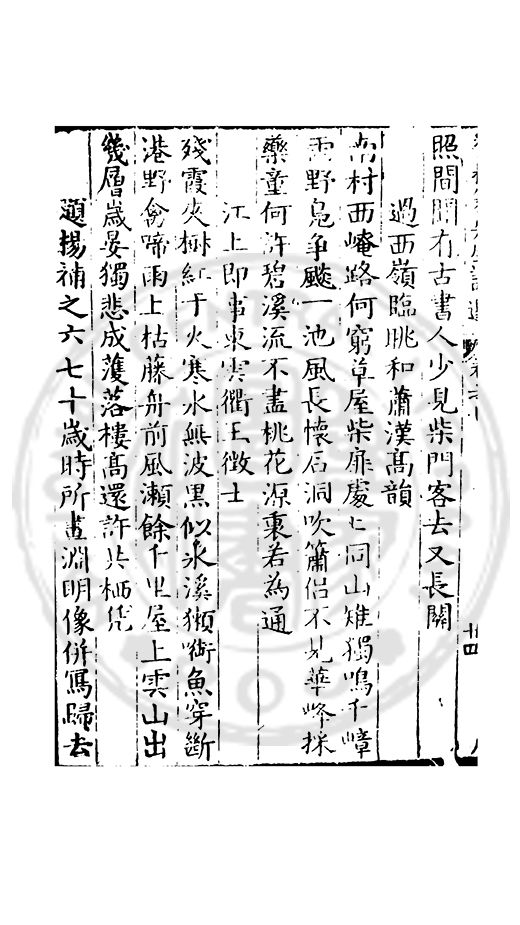 照間閒有古書人少見柴門客去又長關
過西嶺臨眺和蕭漢高韻
南村西崦路何窮草屋柴扉處匕同山雉獨鳴千嶂
雨野鳧爭颭一池風長懷石洞吹簫侶不見華峰採
藥童何許碧溪流不盡桃花源裏若為通
江上即事東雲衢王徵士
殘霞夾樹紅于火寒水無波黑似氷溪獺銜魚穿斷
港野禽啼雨上枯藤舟前風瀨餘千里屋上雲山出
幾層歲晏獨悲成濩落樓高還許共栖凭
題楊補之六七十歲時所畫淵明像併寫歸去
十四